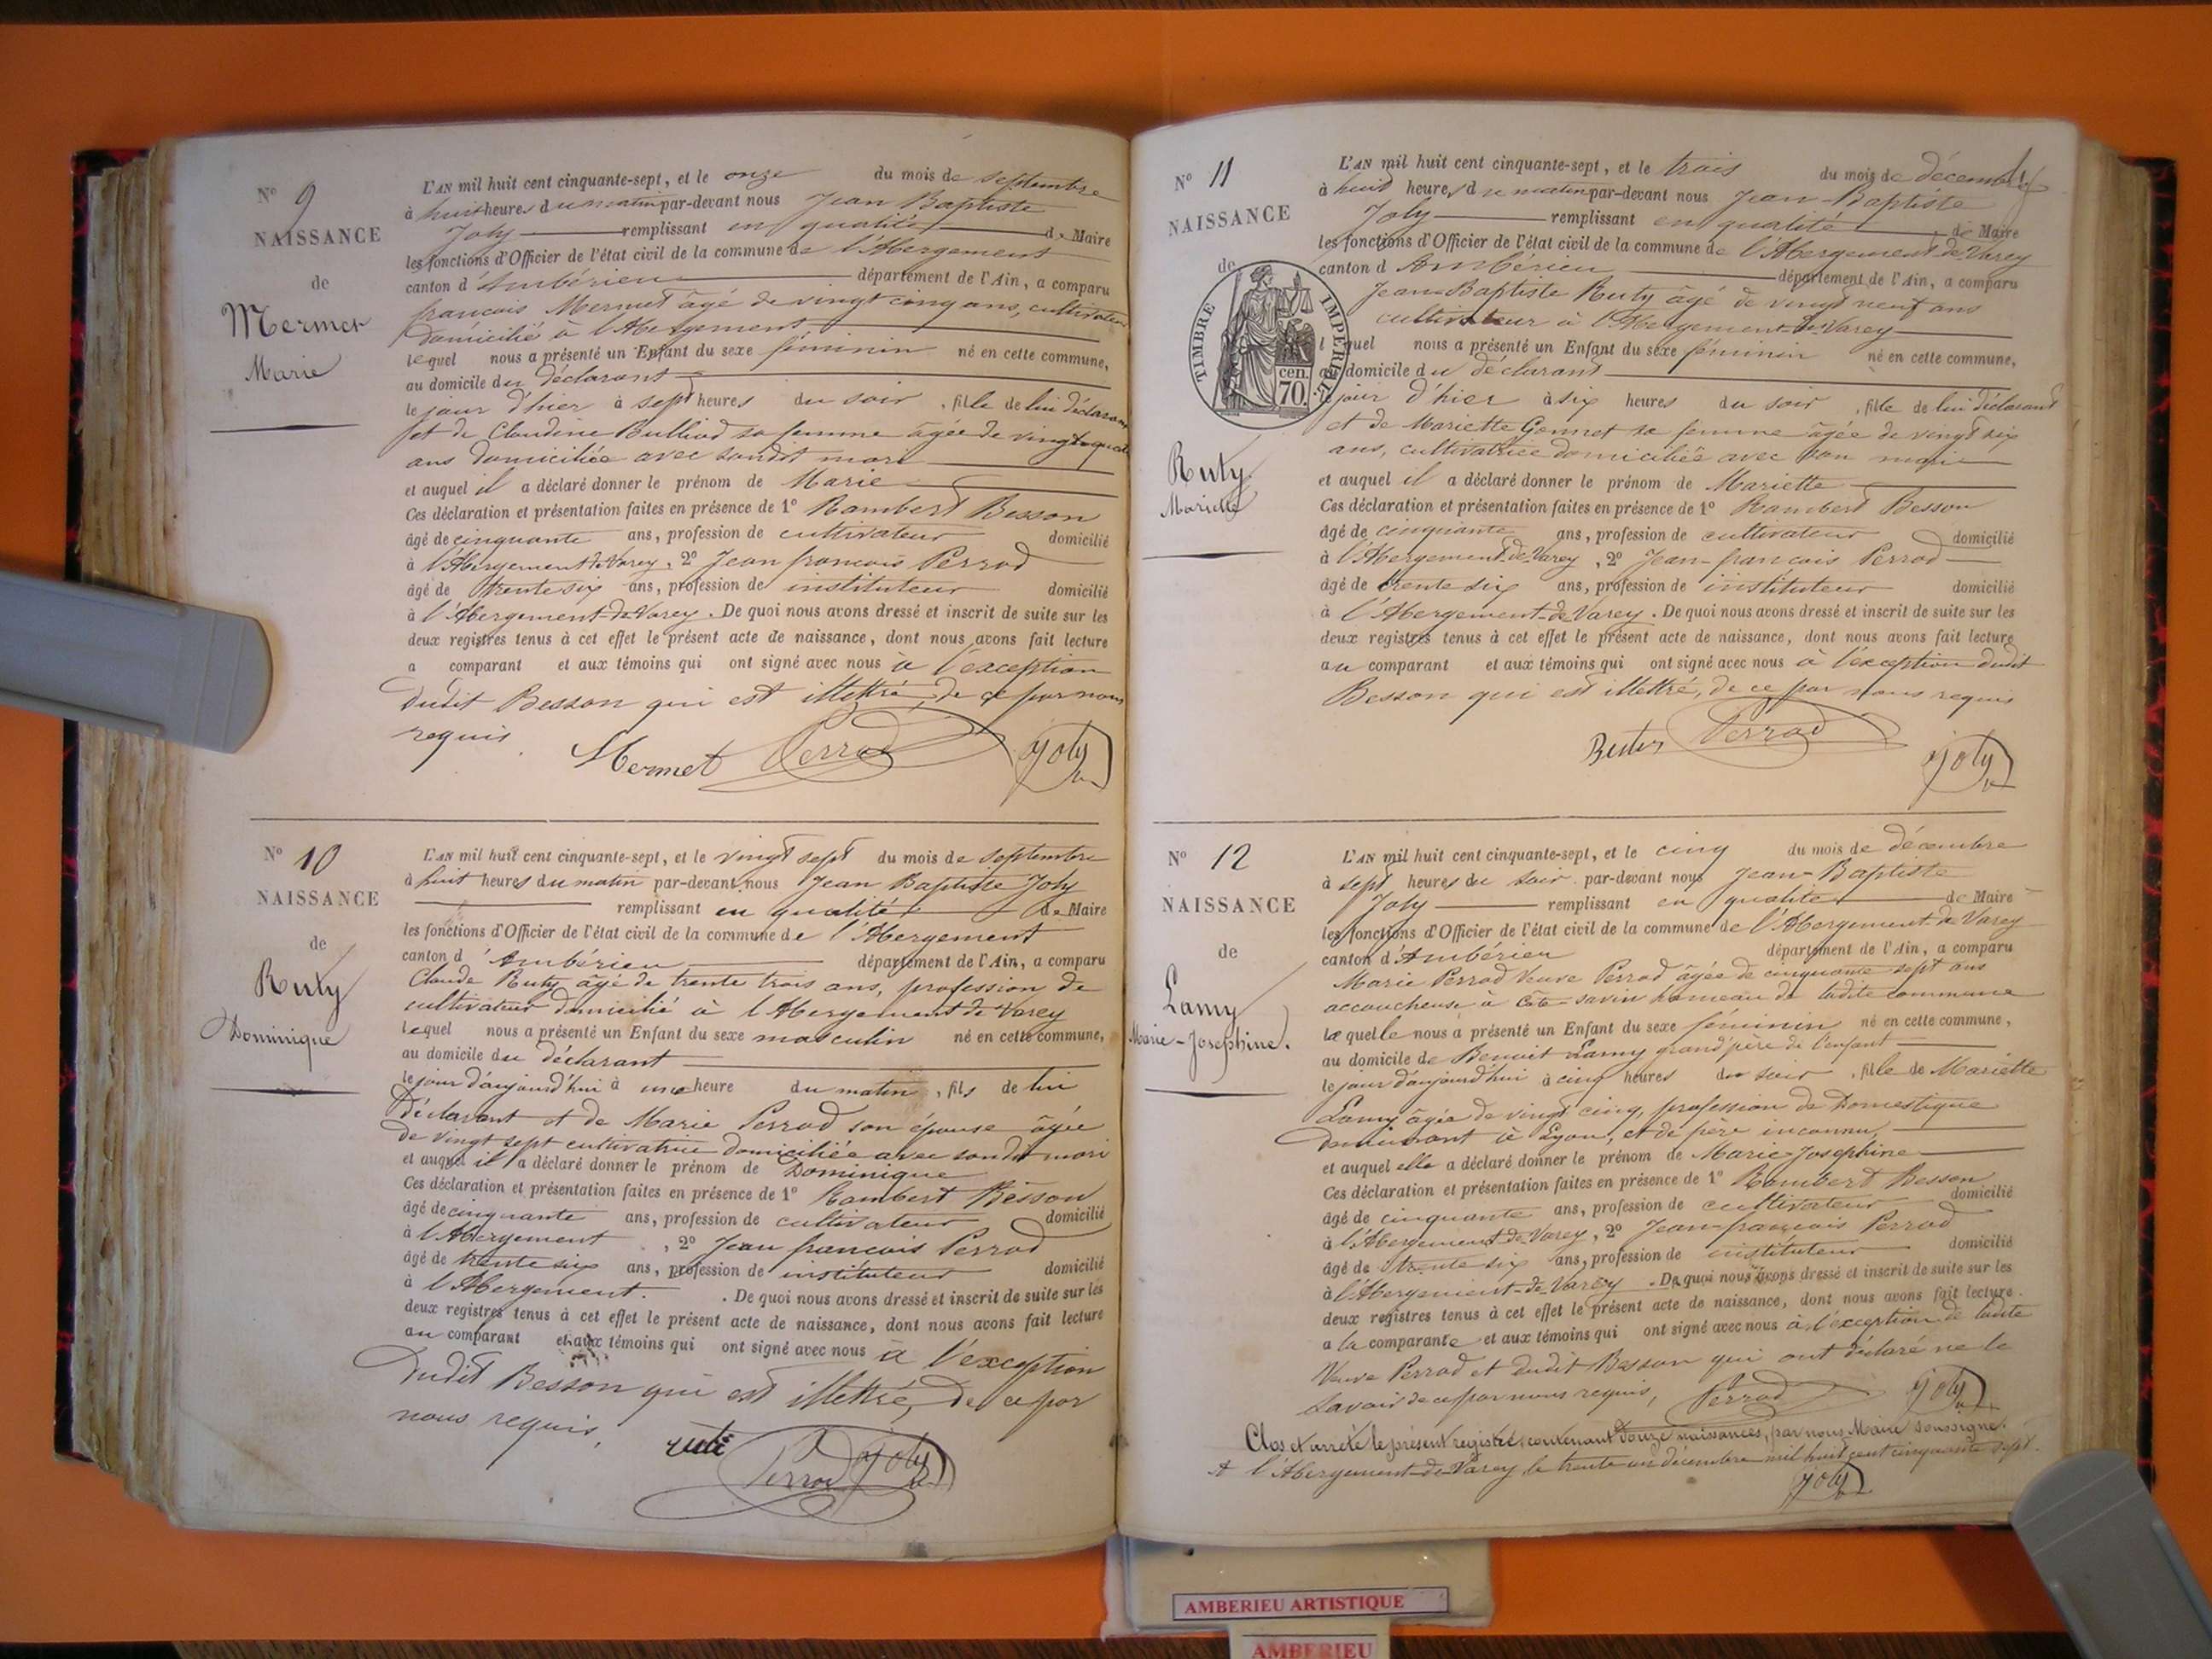 N° 9
NAISSANCE
de
Mermet
Marie
L'AN mil huit cent cinquante-sept, et le onze du mois de septembre
à huit heures du matin par-devant nous Jean Baptiste
Joly remplissant en qualité de Maire
les fonctions d'Officier de l'état civil de la commune de l'Abergement
canton d'Ambérieu département de l'Ain, a comparu
françois Mermet âgé de vingt cinq ans, cultivateur
domicilié à l'Abergement,
lequel nous a présenté un Enfant du sexe féminin né en cette commune,
au domicile du déclarant
le jour d'hier à sept heures du soir, fille de lui déclarant
et de Claudine Bulliod sa femme âgée de vingt quatre
ans domiciliée avec sondit mari
et auquel il a déclaré donner le prénom de Marie
Ces déclaration et présentation faites en présence de 1° Rambert Besson
âgé de cinquante ans, profession de cultivateur domicilié
à l'Abergement de Varey, 2° Jean françois Perrod
âgé de trente six ans, profession de instituteur domicilié
à l'Abergement-de-Varey. De quoi nous avons dressé et inscrit de suite sur les
deux registres tenus à cet effet le présent acte de naissance, dont nous avons fait lecture
a comparant et aux témoins qui ont signé avec nous à l'exception
dudit Besson qui est illettré, de ce par nous
requis.
Mermet Perrod Joly
N° 10
NAISSANCE
de
Ruty
Dominique
L'AN mil huit cent cinquante-sept, et le vingt sept du mois de septembre
à huit heures du matin par-devant nous Jean Baptiste Joly
remplissant en qualité de Maire
les fonctions d'Officier de l'état civil de la commune de l'Abergement
canton d'Ambérieu département de l'Ain, a comparu
Claude Ruty âgé de trente trois ans, profession de
cultivateur domicilié à l'Abergement de Varey
lequel nous a présenté un Enfant du sexe masculin né en cette commune,
au domicile du déclarant
le jour d'aujourd'hui à une heure du matin, fils de lui
déclarant et de Marie Perrod son épouse âgée
de vingt sept cultivatrice domiciliée avec sondit mari
et auquel il a déclaré donner le prénom de Dominique
Ces déclaration et présentation faites en présence de 1° Rambert Besson
âgé de cinquante ans, profession de cultivateur domicilié
à l'Abergement, 2° Jean françois Perrod
âgé de trente six ans, profession de instituteur domicilié
à l'Abergement. De quoi nous avons dressé et inscrit de suite sur les
deux registres tenus à cet effet le présent acte de naissance, dont nous avons fait lecture
au comparant et aux témoins qui ont signé avec nous à l'exception
dudit Besson qui est illettré, de ce par
nous requis,
ruti Perrod Joly
N° 11
NAISSANCE
de
TIMBRE IMPERIAL
70 cen.
Ruty
Mariette
L'AN mil huit cent cinquante-sept, et le trois du mois de décembre
à huit heures du matin par-devant nous Jean-Baptiste
Joly remplissant en qualité de Maire
les fonctions d'Officier de l'état civil de la commune de l'Abergement-de-Varey
canton d'Ambérieu département de l'Ain, a comparu
Jean-Baptiste Ruty âgé de vingt neuf ans
cultivateur à l'Abergement-de-Varey
lequel nous a présenté un Enfant du sexe féminin né en cette commune,
au domicile du déclarant
le jour d'hier à six heures du soir, fille de lui déclarant
et de Mariette Gonnet sa femme âgée de vingt six
ans, cultivatrice domiciliée avec son mari
et auquel il a déclaré donner le prénom de Mariette
Ces déclaration et présentation faites en présence de 1° Rambert Besson
âgé de cinquante ans, profession de cultivateur domicilié
à l'Abergement de Varey, 2° Jean-françois Perrod
âgé de trente six ans, profession de instituteur domicilié
à l'Abergement-de-Varey. De quoi nous avons dressé et inscrit de suite sur les
deux registres tenus à cet effet le présent acte de naissance, dont nous avons fait lecture
au comparant et aux témoins qui ont signé avec nous à l'exception dudit
Besson qui est illettré, de ce par nous requis
Perrod Joly
N° 12
NAISSANCE
de
Lamy
Marie-Josephine.
L'AN mil huit cent cinquante-sept, et le cinq du mois de décembre
à sept heures du soir par-devant nous Jean-Baptiste
Joly remplissant en qualité de Maire
les fonctions d'Officier de l'état civil de la commune de l'Abergement-de-Varey
canton d'Ambérieu département de l'Ain, a comparu
Marie Perrod Veuve Perrod âgée de cinquante sept ans
accoucheuse à Côte-savin hameau de ladite commune
laquelle nous a présenté un Enfant du sexe féminin né en cette commune,
au domicile de Benoit Lamy grand'père de l'enfant
le jour d'aujourd'hui à cinq heures du soir, fille de Mariette
Lamy âgée de vingt cinq, profession de Domestique
demeurant à Lyon, et de père inconnu,
et auquel elle a déclaré donner le prénom de Marie Josephine
Ces déclaration et présentation faites en présence de 1° Rambert Besson
âgé de cinquante ans, profession de cultivateur domicilié
à l'Abergement de Varey, 2° Jean-françois Perrod
âgé de trente six ans, profession de instituteur domicilié
à l'Abergement-de-Varey. De quoi nous avons dressé et inscrit de suite sur les
deux registres tenus à cet effet le présent acte de naissance, dont nous avons fait lecture
a la comparante et aux témoins qui ont signé avec nous à l'exception de ladite
Veuve Perrod et dudit Besson qui ont déclaré ne le
savoir de ce par nous requis, Perrod Joly
Clos et arrêté le présent registre, contenant douze naissances, par nous Maire soussigné.
A l'Abergement-de-Varey le trente un décembre mil huit cent cinquante sept.
Joly
AMBERIEU ARTISTIQUE
AMBERIEU